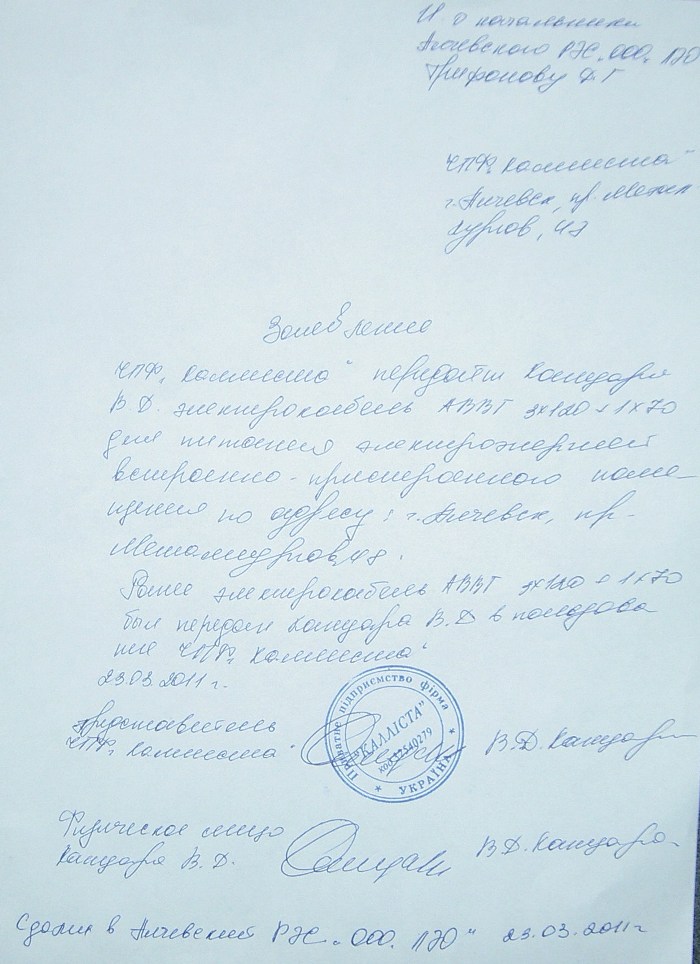 И о начальника
Алчевского РЭС „ООО„ ЛЭО
Трифонову Д Г
ЧПФ„ Каллиста"
г. Алчевск, пр. Метал
лургов, 
Заявление
ЧПФ„ Каллиста" передаёт Кандара
В Д. электрокабель АВВГ 3х120 + 1х70
для питания электроэнергией
встроенно-пристроенного поме-
щения по адресу: г. Алчевск, пр-
Металлургов,
Ранее электрокабель АВВГ 3х120 + 1х70
был передан Кандара В. Д в пользова
ние ЧПФ„ Каллиста"
23.03.2011 г.
Представитель
ЧПФ„ Каллиста"
В.Д. Кандара
Приватне підприємство фірма
"КАЛЛІСТА"
код 32540279
* УКРАЇНА *
Физическое лицо
Кандара В. Д.
В.Д. Кандара.
Сдали в Алчевский РЭС „ООО„ ЛЭО" 23.03.2011 г